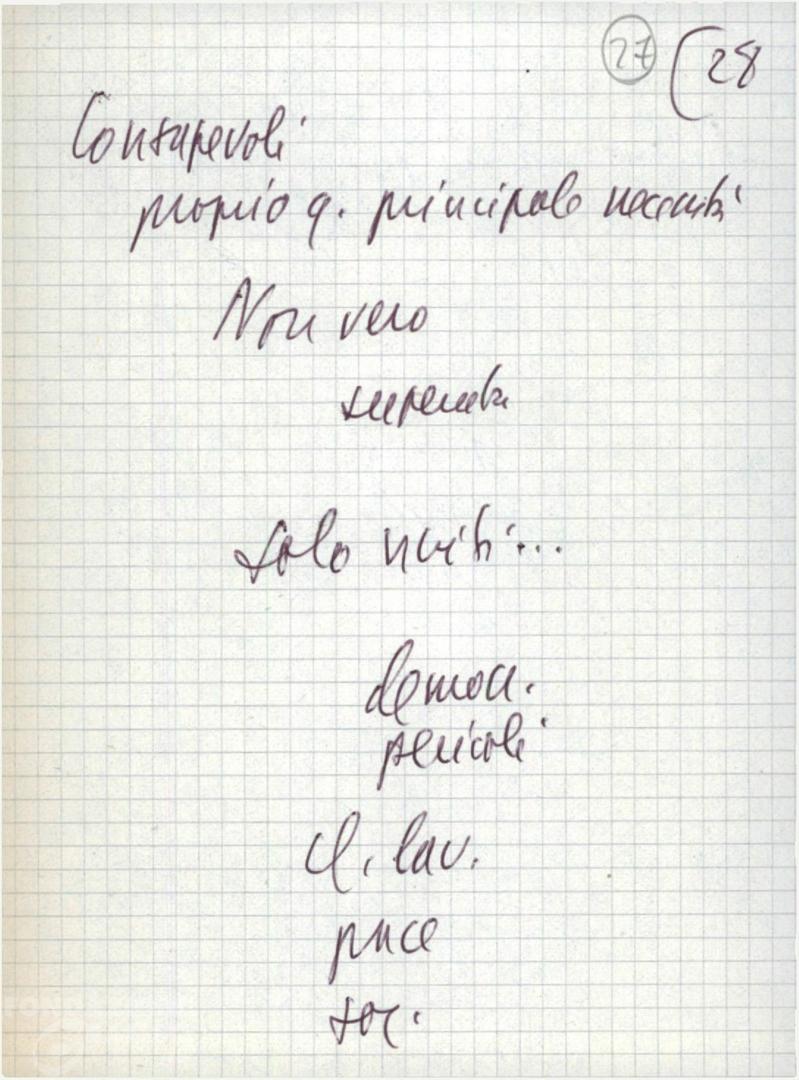 27 (28
Consapevoli
proprio q. principale necessità
Non vero
superata
solo uniti...
democr.
pericoli
cl. lav.
pace
soc.